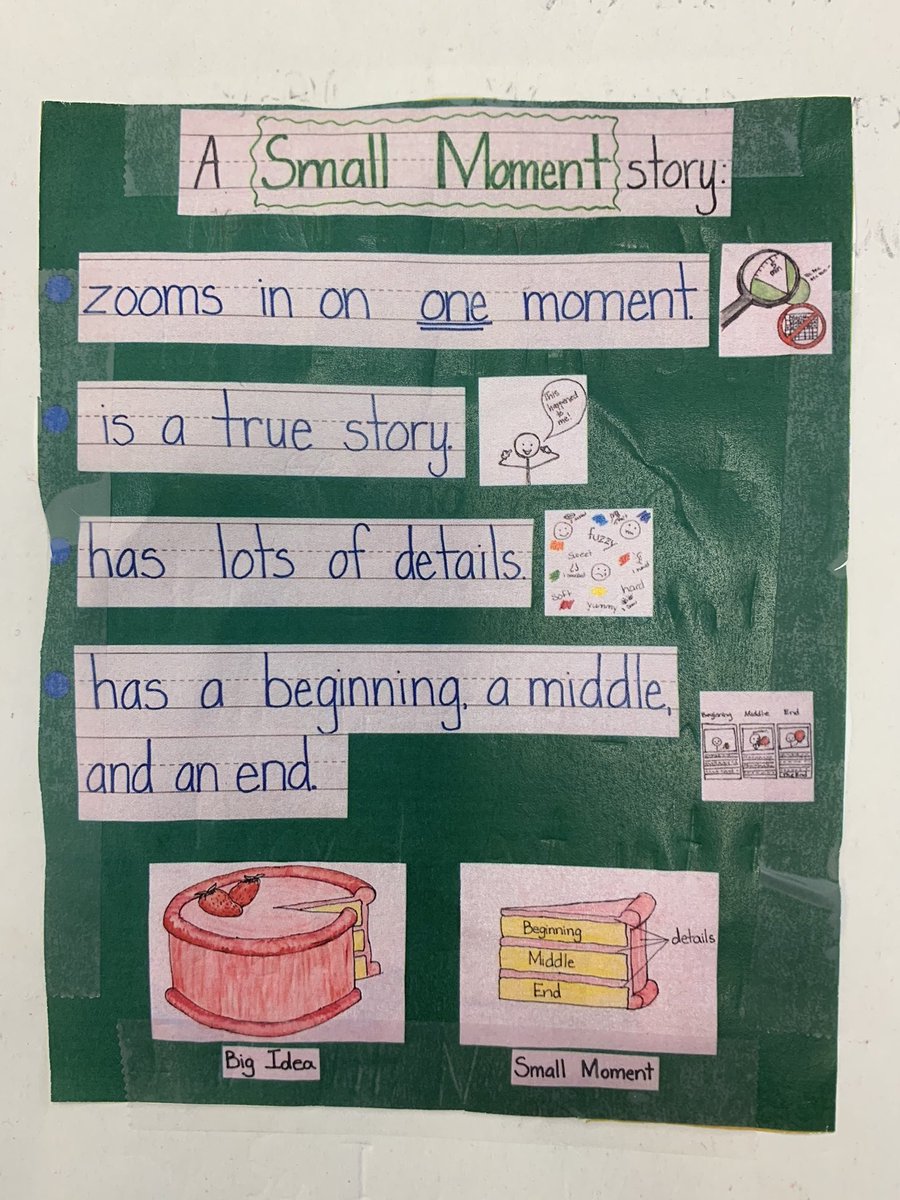 A Small Moment story:
zooms in on one moment.
is a true story.
This
happened
to
me!
has lots of details.
fuzzy
sweet
soft
yummy
hard
has a beginning, a middle,
and an end.
Beginning Middle End
The End
Beginning
Middle
End
details
Big Idea
Small Moment